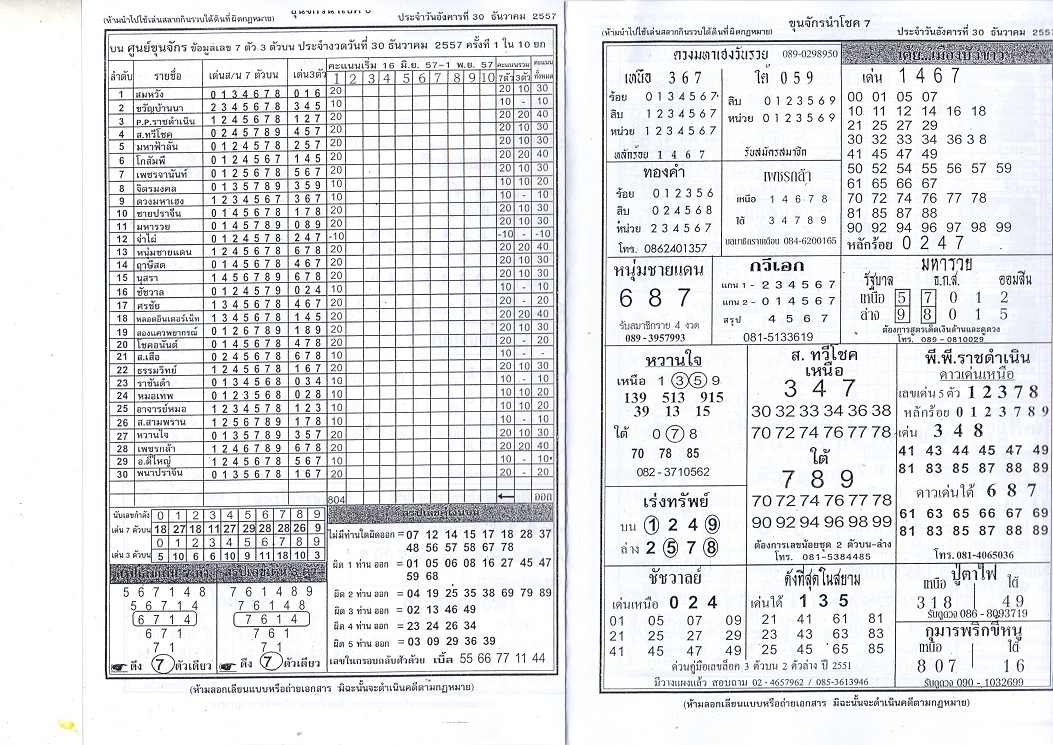 (ห้ามนำไปใช้เล่นสลากกินรวบใต้ดินที่ผิดกฎหมาย) ประจำวันอังคารที่ 30 ธันวาคม 2557
บน ศูนย์ขุนจักร ข้อมูลเลข 7 ตัว 3 ตัวบน ประจำงวดวันที่ 30 ธันวาคม 2557 ครั้งที่ 1 ใน 10 ยก
ลำดับ รายชื่อ เด่นส/น 7 ตัวบน เด่น3ตัว คะแนนเริ่ม 16 มิ.ย. 57-1 พ.ย. 57 คะแนนรวม คะแนน
1 2 3 4 5 6 7 8 9 10 7ตัว 3ตัว ทั้งหมด
1 สมหวัง 0 1 3 4 6 7 8 0 1 6 20 20 10 30
2 ขวัญบ้านนา 2 3 4 5 6 7 8 3 4 5 10 10 - 10
3 P.P.ราชดำเนิน 1 2 4 5 6 7 8 1 2 7 20 20 20 40
4 ส.ทวีโชค 0 2 4 5 7 8 9 4 5 7 20 20 10 30
5 มหาฟ้าลั่น 0 1 2 4 5 7 8 2 5 7 20 20 10 30
6 โกสัมพี 0 1 2 4 5 6 7 1 4 5 20 20 20 40
7 เพชรจานันท์ 0 1 2 5 6 7 8 5 6 7 20 20 10 30
8 จิตรมงคล 0 1 3 5 7 8 9 3 5 9 10 10 10 20
9 ดวงมหาเฮง 1 2 3 4 5 6 7 3 6 7 20 20 10 30
10 ชายปราจีน 0 1 4 5 6 7 8 1 7 8 20 20 10 30
11 มหารวย 0 1 4 5 7 8 9 0 8 9 20 20 10 30
12 จ่าไผ่ 0 1 2 4 5 7 8 2 4 7 -10 -10 - -10
13 หนุ่มชายแดน 1 2 4 5 6 7 8 6 7 8 20 20 20 40
14 ฤาษีสด 0 1 4 5 6 7 8 4 6 7 20 20 10 30
15 นุสรา 1 4 5 6 7 8 9 6 7 8 20 20 10 30
16 ชัชวาล 0 1 4 5 6 7 9 0 2 4 20 20 - 20
17 ศรชัย 1 3 4 5 6 7 8 4 6 7 20
18 หลอดอินเตอร์เน็ท 1 3 4 5 6 7 8 1 4 5 20 20 20 40
19 สองแควพยากรณ์ 0 1 2 6 7 8 9 1 8 9 20 20 10 30
20 โชคอนันต์ 0 1 4 5 6 7 8 4 7 8 20 20 - 20
21 ส.เสือ 0 2 4 5 6 7 8 6 7 8
22 ธรรมวิทย์ 1 2 4 5 6 7 8 1 6 7 20 20 10 30
23 ราชันดำ 0 1 3 4 5 6 8 0 3 4 10 10 - 10
24 หมอเทพ 0 1 2 3 5 6 8 0 2 8 10 10 10 20
25 อาจารย์หมอ 1 2 3 4 5 7 8 1 2 3 10 10 10 20
26 ส.สามพราน 1 2 5 6 7 8 9 1 7 8 10 10 - 10
27 หวานใจ 0 1 3 5 7 8 9 3 5 7 20 20 10 30
28 เพชรกล้า 1 2 4 6 7 8 9 6 7 8 20 20 20 40
29 อ.ดีใหญ่ 1 2 4 5 6 7 8 5 6 7 10 10 - 10
30 พนาปราจีน 0 1 3 5 6 7 8 1 6 7 20 20 - 20
804 ← ออก
นับเลขกำลัง 0 1 2 3 4 5 6 7 8 9
เด่น 7 ตัวบน 18 27 18 11 27 29 28 28 26 9
0 1 2 3 4 5 6 7 8 9
เด่น 3 ตัวบน 5 10 6 6 10 9 11 18 10 3
5 6 7 1 4 8
5 6 7 1 4
6 7 1 4
6 7 1
7 1
ดึง 7 ตัวเดียว
7 6 1 4 8 9
7 6 1 4 8
7 6 1 4
7 6 1
7 1
ดึง 7 ตัวเดียว
ไม่มีท่านใดผิดออก = 07 12 14 15 17 18 28 37
48 56 57 58 67 78
ผิด 1 ท่าน ออก = 01 05 06 08 16 27 45 47
59 68
ผิด 2 ท่าน ออก = 04 19 25 35 38 69 79 89
ผิด 3 ท่าน ออก = 02 13 46 49
ผิด 4 ท่าน ออก = 23 24 26 34
ผิด 5 ท่าน ออก = 03 09 29 36 39
เลขในกรอบกลับสัวด้วย เบิ้ล 55 66 77 11 44
(ห้ามลอกเลียนแบบหรือถ่ายเอกสาร มิฉะนั้นจะดำเนินคดีตามกฎหมาย)
ขุนจักรนำโชค 7
(ห้ามนำไปใช้เล่นสลากกินรวบใต้ดินที่ผิดกฎหมาย) ประจำวันอังคารที่ 30 ธันวาคม 2557
ดวงมหาเฮงวันรวย 089-0298950
เหนือ 3 6 7
ร้อย 0 1 3 4 5 6 7
สิบ 1 2 3 4 5 6 7
หน่วย 1 2 3 4 5 6 7
หลักร้อย 1 4 6 7
ใต้ 0 5 9
สิบ 0 1 2 3 5 6 9
หน่วย 0 1 3 5 6 9
รับสมัครสมาชิก
เด่น 1 4 6 7
00 01 05 07
10 11 12 14 16 18
21 25 27 29
30 32 33 34 36 3 8
41 45 47 49
50 52 54 55 56 57 59
61 65 66 67
70 72 74 76 77 78
81 85 87 88
90 92 94 96 97 98 99
หลักร้อย 0 2 4 7
ทองคำ
ร้อย 0 1 2 3 5 6
สิบ 0 2 4 5 6 8
หน่วย 2 3 4 5 6 7
โทร. 0862401357
เพชรกล้า
เหนือ 1 4 6 7 8
ใต้ 3 4 7 8 9
084-6200165
หนุ่มชายแดน
6 8 7
รับสมาชิกราย 4 งวด
089-3957993
กวีเอก
แถน 1 - 2 3 4 5 6 7
แถน 2 - 0 1 4 5 6 7
สรุป 4 5 6 7
081-5133619
มหารวย
รัฐบาล ธ.ก.ส. ออมสิน
เหนือ 5 7 0 1 2
ล่าง 9 8 0 1 5
ต้องการสูตรเด็ดเงินล้านและดูดวง
โทร. 089 - 0810029
หวานใจ
เหนือ 1 3 5 9
139 513 915
39 13 15
ใต้ 0 7 8
70 78 85
082-3710562
ส. ทวีโชค
เหนือ
3 4 7
30 32 33 34 36 38
70 72 74 76 77 78
ใต้
7 8 9
70 72 74 76 77 78
90 92 94 96 98 99
ต้องการเลขน้อยชุด 2 ตัวบน-ล่าง
โทร. 081-5384485
พี.พี.ราชดำเนิน
ดาวเด่นเหนือ
เลขเด่น 5 ตัว 1 2 3 7 8
หลักร้อย 0 1 2 3 7 8 9
เด่น 3 4 8
41 43 44 45 47 49
81 83 85 87 88 89
ดาวเด่นใต้ 6 8 7
61 63 65 66 67 69
81 83 85 87 88 89
โทร. 081-4065036
เร่งทรัพย์
บน 1 2 4 9
ล่าง 2 5 7 8
ชัชวาลย์
เด่นเหนือ 0 2 4
01 05 07 09
21 25 27 29
41 45 47 49
ดังที่สุดในสยาม
เด่นใต้ 1 3 5
21 41 61 81
23 43 63 83
25 45 65 85
ด่วนคู่มือเลขล็อค 3 ตัวบน 2 ตัวล่าง ปี 2551
มีวางแผงแล้ว สอบถาม 02 - 4657962 / 085-3613946
ปู่ตาไฟ
เหนือ ใต้
3 1 8 4 9
รับดูดวง 086 - 8093719
กุมารพริกขี้หนู
เหนือ ใต้
8 0 7 1 6
รับดูดวง 090 - 1032699
(ห้ามลอกเลียนแบบหรือถ่ายเอกสาร มิฉะนั้นจะดำเนินคดีตามกฎหมาย)